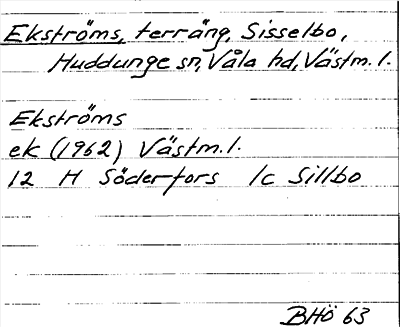 Ekströms, terräng, Sisselbo,
Huddunge sn, Våla hd, Västm. l.
Ekströms
ek (1962) Västm. l.
12 H Söderfors 1c Sillbo
BHö 63